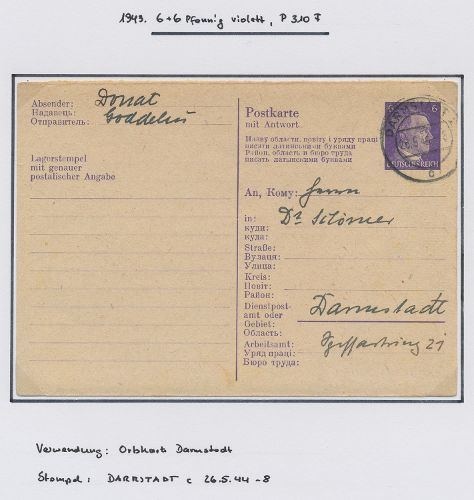 1943. 6+6 Pfennig violett, P 310 F
Absender:
Надавець:
Отправитель:
Donat
Goddelau
Lagerstempel
mit genauer
postalischer Angabe
Postkarte
mit Antwort
Назву области, повіту і уряду праці
писати латинськими буквами
Район, область и бюро труда
писать латинскими буквами
6
DEUTSCHES REICH
An, Кому: Herrn
in: Dr
куди:
куда:
Straße:
Вулиця:
Улица:
Kreis:
Повіт:
Район:
Dienstpost-
amt oder
Gebiet:
Область:
Darmstadt
Arbeitsamt:
Уряд праці:
Бюро труда:
21
Verwendung: Ortskart Darmstadt
Stempel: DARMSTADT c 26.5.44 -8